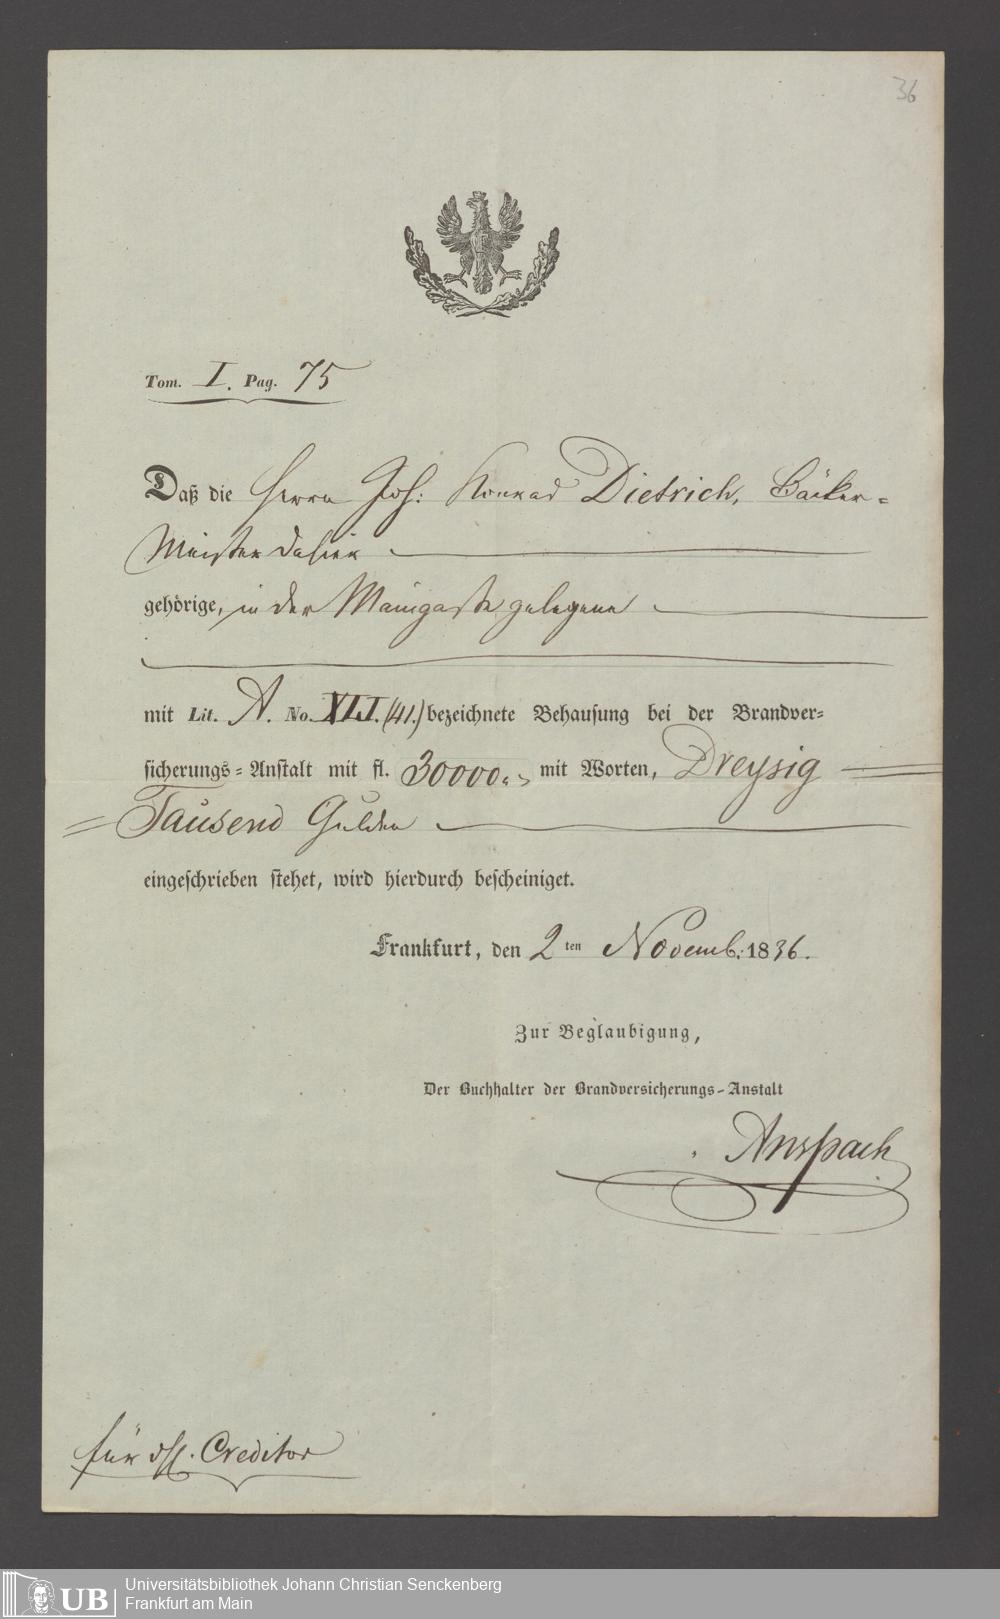 36
Tom. I. Pag. 75
Daß die Herrn Joh: Konrad Dietrich, Bäcker=
Meister dahier
gehörige, in der Maingasse gelegene
mit Lit. A. No. XLI. (41.) bezeichnete Behausung bei der Brandver=
sicherungs=Anstalt mit fl. 30000.,, mit Worten, Dreysig
Tausend Gulden
eingeschrieben stehet, wird hierdurch bescheiniget.
Frankfurt, den 2ten Novemb: 1836.
Zur Beglaubigung,
Der Buchhalter der Brandversicherungs-Anstalt
Anspach
für Creditor
UB
Universitätsbibliothek Johann Christian Senckenberg
Frankfurt am Main